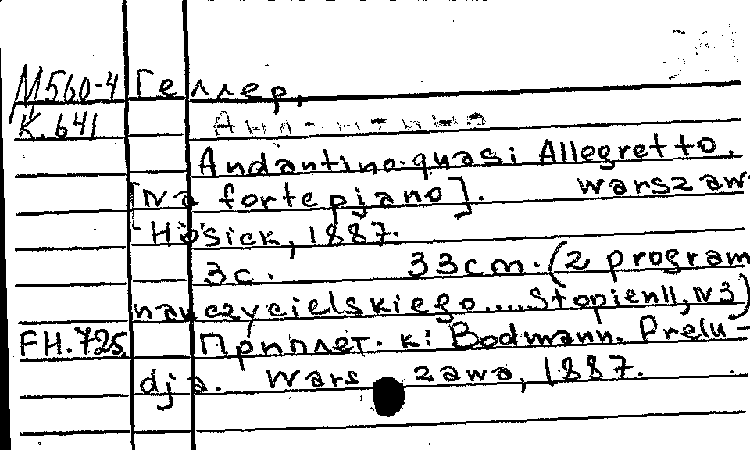 М560-4 Геллер,
К. 641
Andantino quasi Allegretto.
[Na fortepiano]. Warszaw
Hösick, 1887.
3с. 33cm. (Z program
nauczycielskiego.... Stopień II, N3)
FH.725 Приплет. к: Bodmann. Prelu-
dja. Warszawa, 1887.